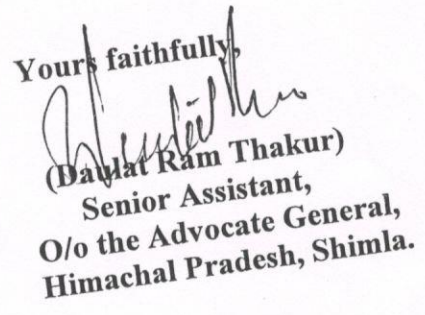 Yours faithfully,
(Daulat Ram Thakur)
Senior Assistant,
O/o the Advocate General,
Himachal Pradesh, Shimla.